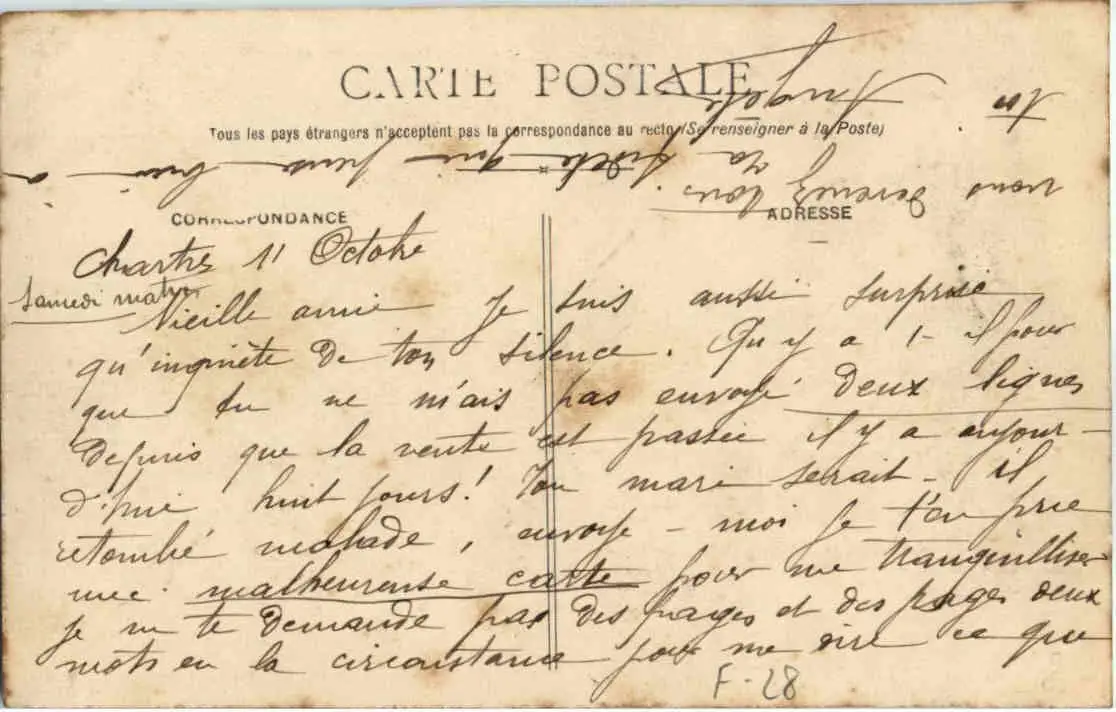 CARTE POSTALE
Tous les pays étrangers n'acceptent pas la correspondance au recto (Se renseigner à la Poste)
CORRESPONDANCE
ADRESSE
Chartres 11 Octobre
Samedi matin
Vieille amie je suis aussi surprise
qu'inquiète de ton silence. Qu'y a t-il pour
que tu ne m'ais pas envoyé deux lignes
depuis que la vente est passée il y a aujour-
d'hui huit jours! Ton mari serait-il
retombé malade, envoye-moi je t'en prie
une malheureuse carte pour me tranquilliser
je ne te demande pas des pages et des pages deux
mots en la circonstance pour me dire ce que
vous devenez tous.
Ta fidèle qui pense bien à
toi
Angèle
F-28